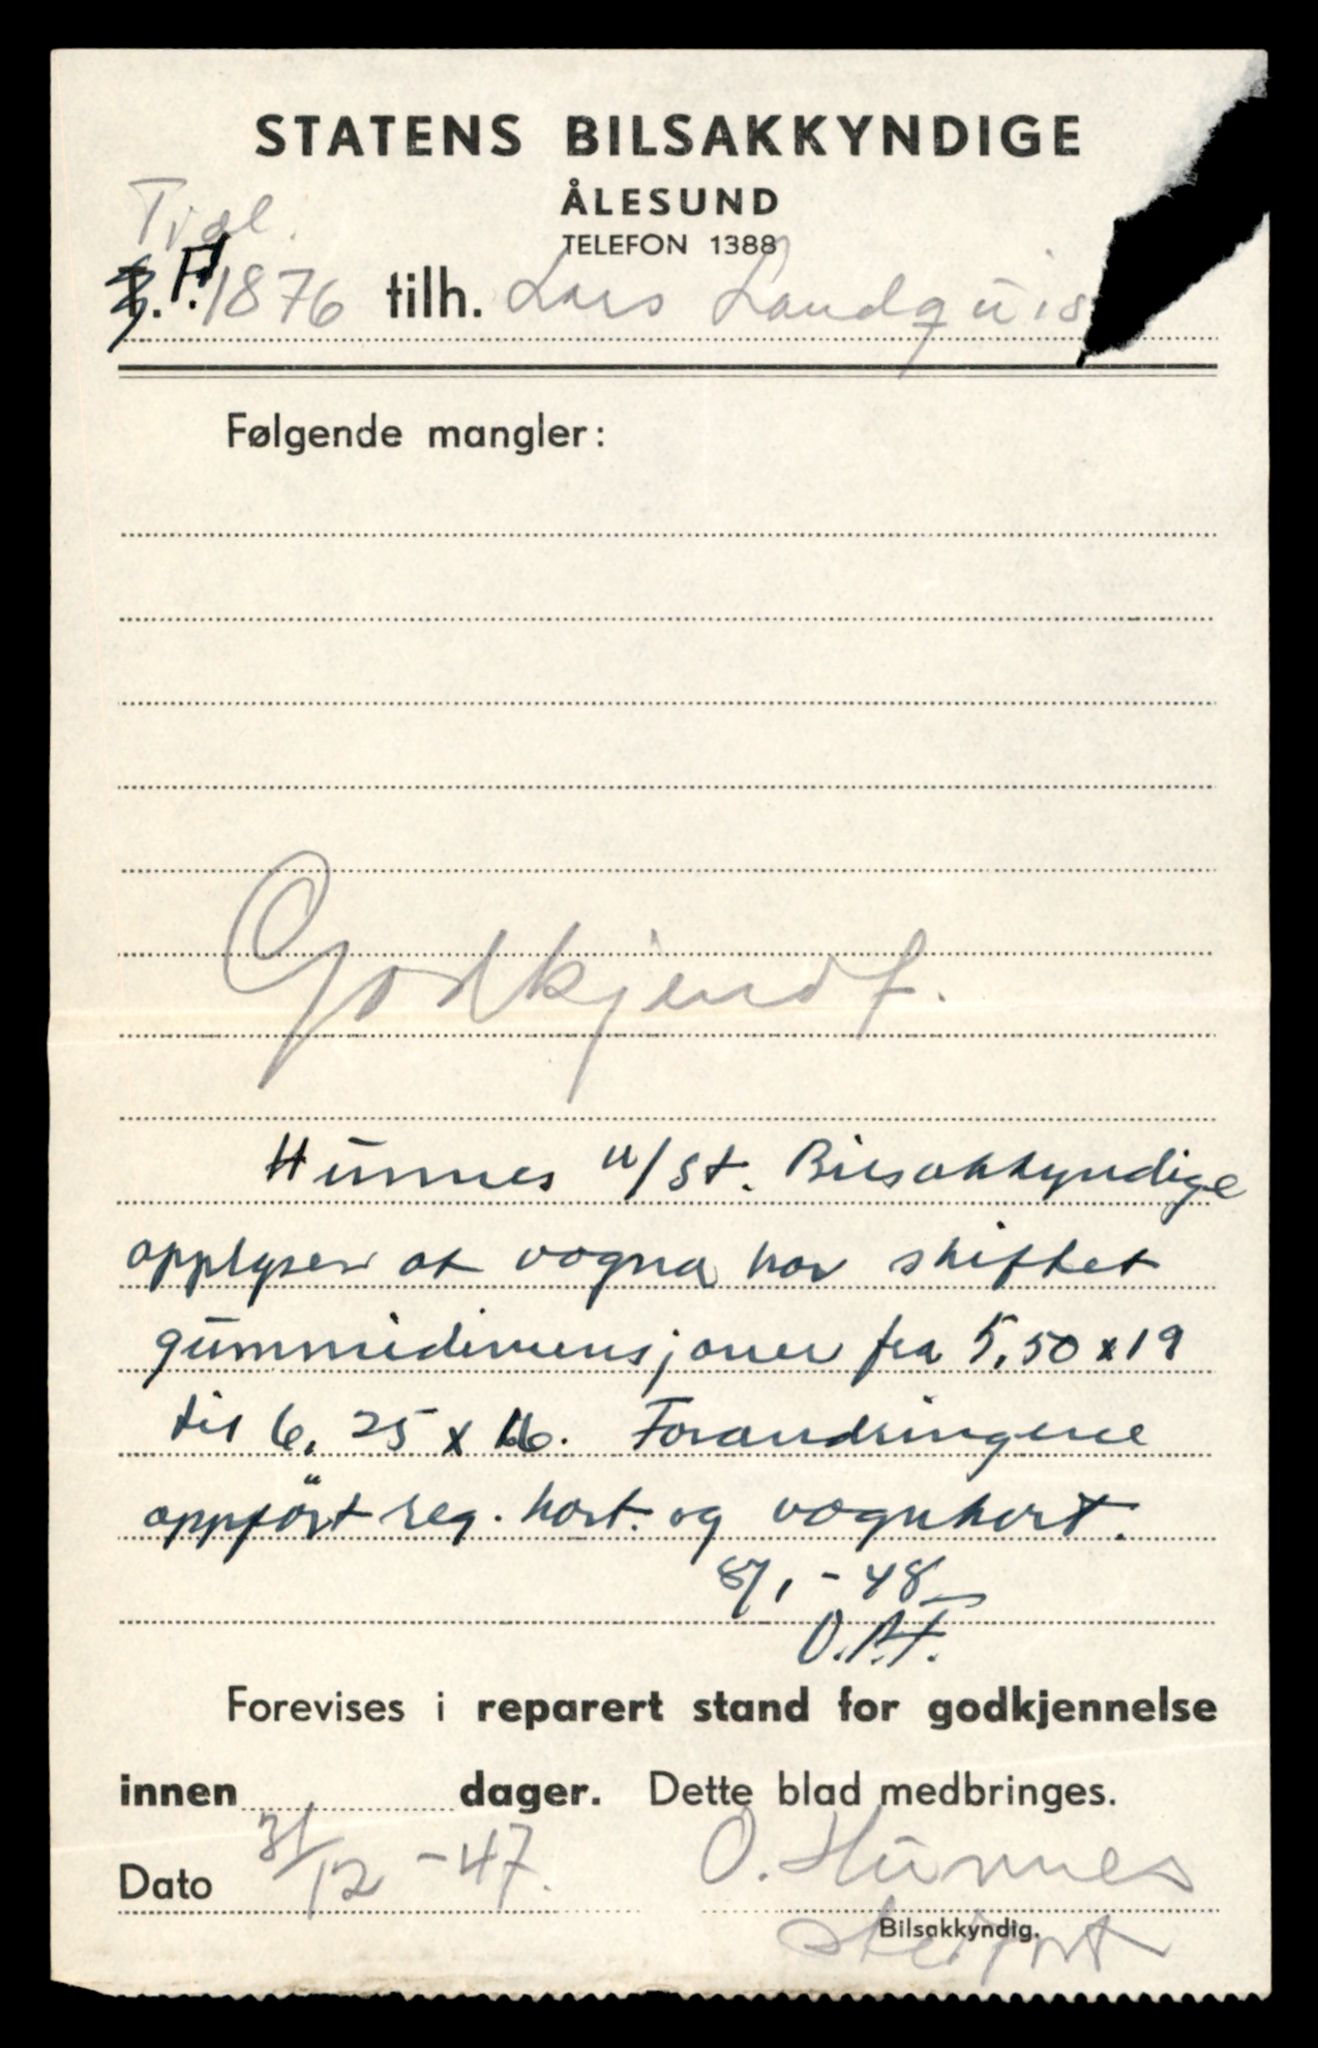 STATENS BILSAKKYNDIGE
ÅLESUND
TELEFON 1388
F. 1876 tilh. Lars Landquis
Følgende mangler:
Godkjendt.
Hunnes u/St. Bilsakkyndige
opplyser at vogna har skiftet
gummidimensjoner fra 5,50 x 19
til 6,25 x 16. Forandringene
oppført reg. kort. og vognkort.
8/1-48
O.A.F.
Forevises i reparert stand for godkjennelse
innen dager. Dette blad medbringes.
Dato 31/12-47. O. Hunnes
Bilsakkyndig.